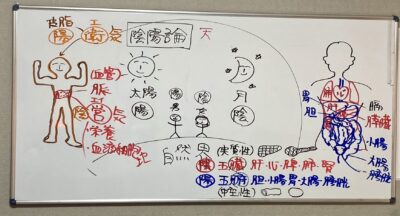 皮脂
陽 衛気
陰陽論
天
(血管)
脈
陰 営気
栄養
太陽
陽 男
陰 女
月
陰
自然界
(実質性)
陰 五臓 肝・心・脾・肺・腎
陽 五腑 胆・小腸・胃・大腸・膀胱
(中空性)
肺
心
胃
胆
脾臓
小腸
大腸
膀胱